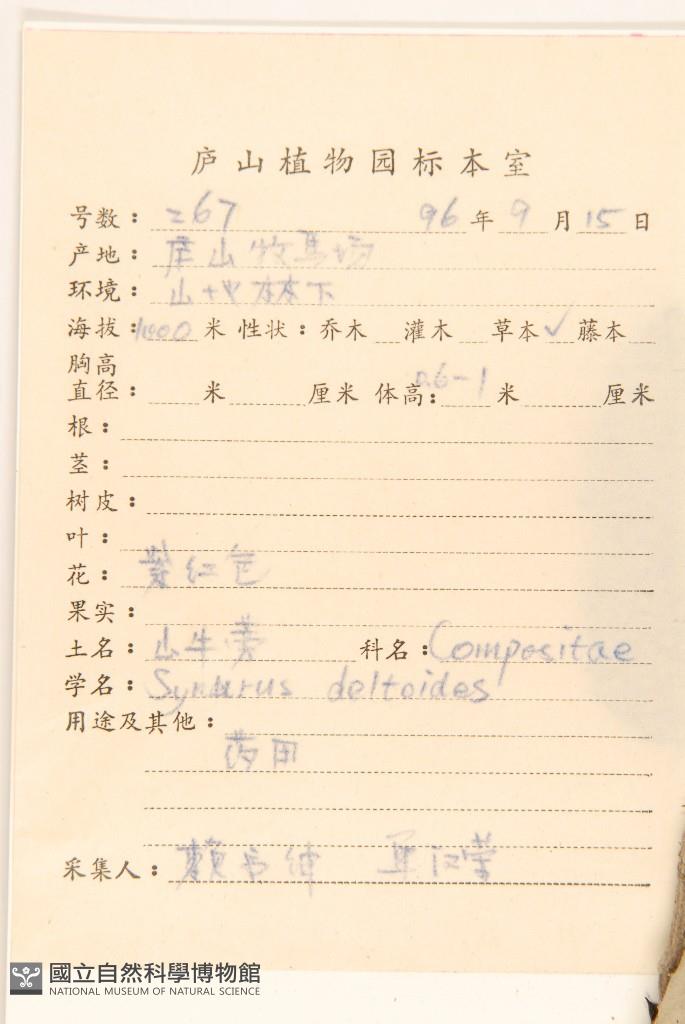 庐山植物园标本室
号数：267 96年9月15日
产地：庐山牧马场
环境：山地林下
海拔：1000米 性状：乔木 灌木 草本✓ 藤本
胸高
直径： 米 厘米 体高：0.6-1米 厘米
根：
茎：
树皮：
叶：
花：紫红色
果实：
土名：山牛蒡 科名：Compositae
学名：Synurus deltoides
用途及其他：
药用
采集人：赖书绅
國立自然科學博物館
NATIONAL MUSEUM OF NATURAL SCIENCE